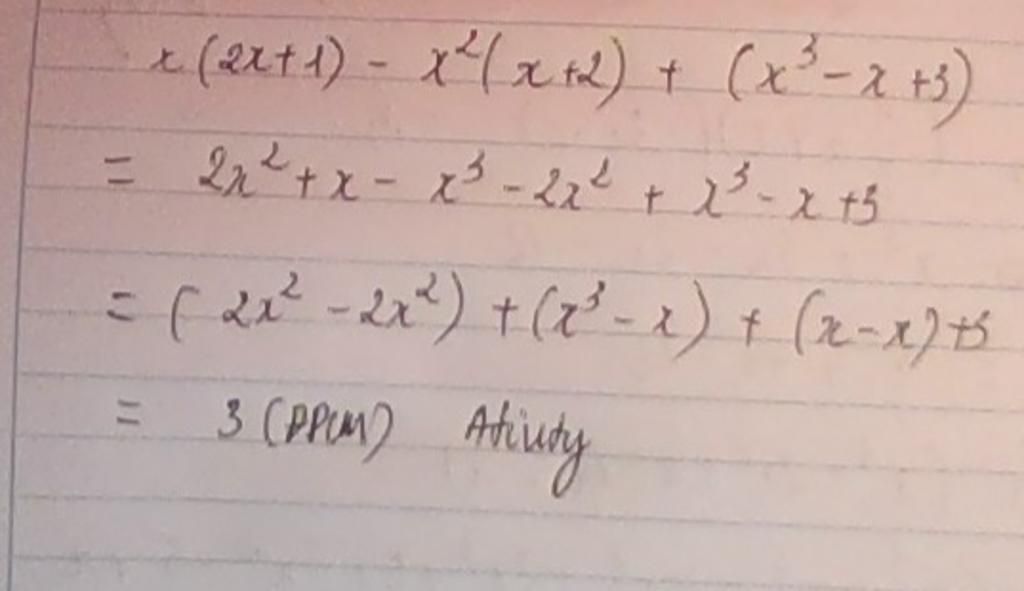 x(2x+1) - x²(x+2) + (x³-x+3)
= 2x²+x- x³-2x² + x³-x+3
= (2x²-2x²)+(x³-x)+(x-x)+3
= 3 (ĐPCM)